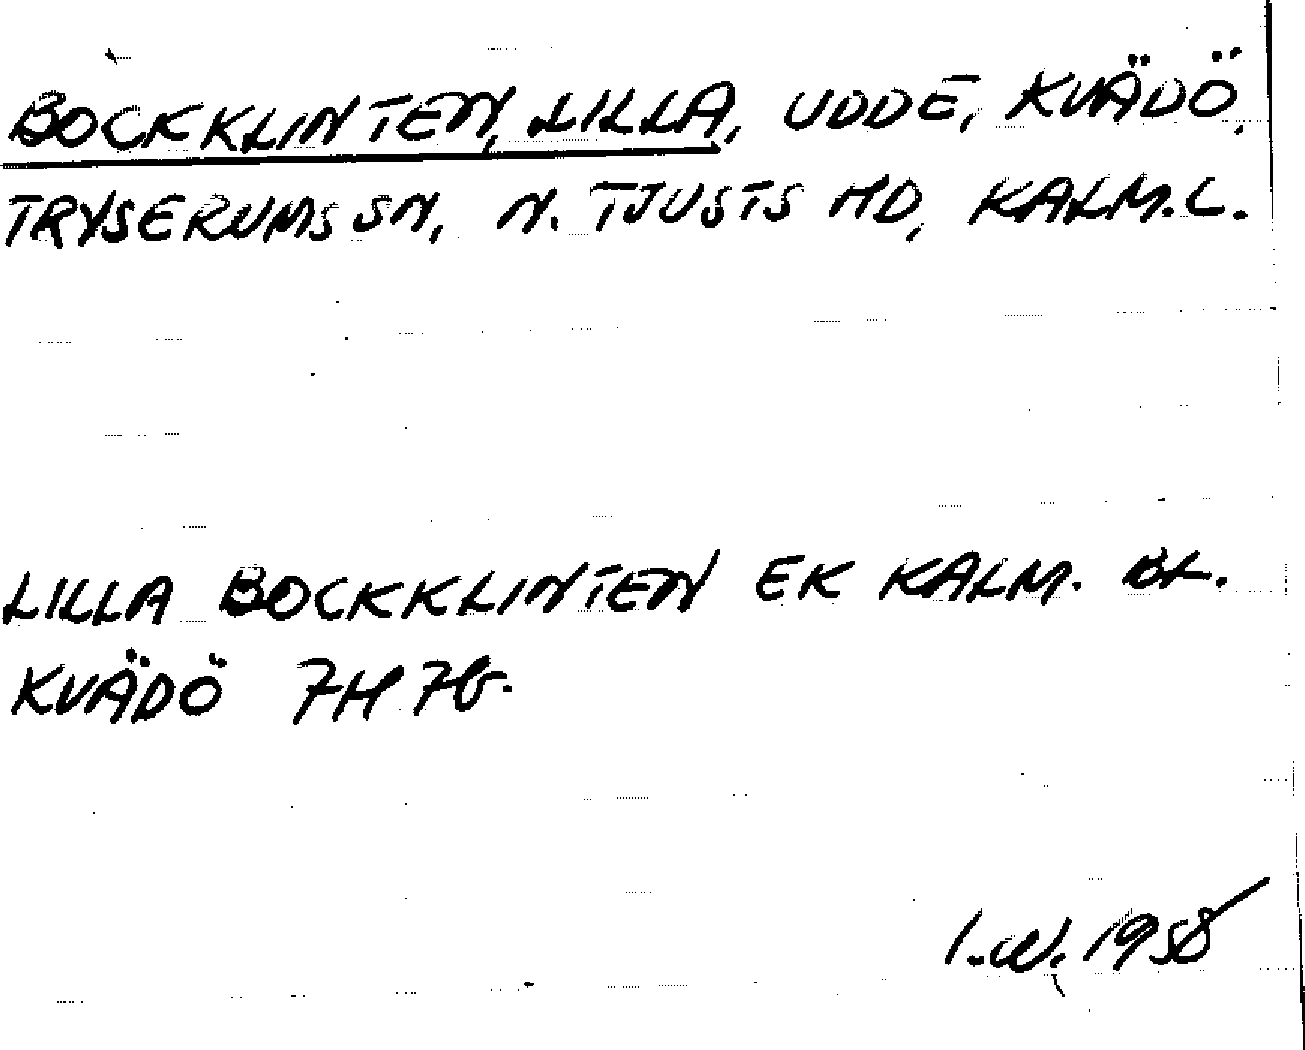 BOCKKLINTEN, LILLA, UDDE, KVÄDÖ,
TRYSERUMS SN, N. TJUSTS HD, KALM.L.
LILLA BOCKKLINTEN EK KALM. BL.
KVÄDÖ 7H 7b.
I.W. 1958